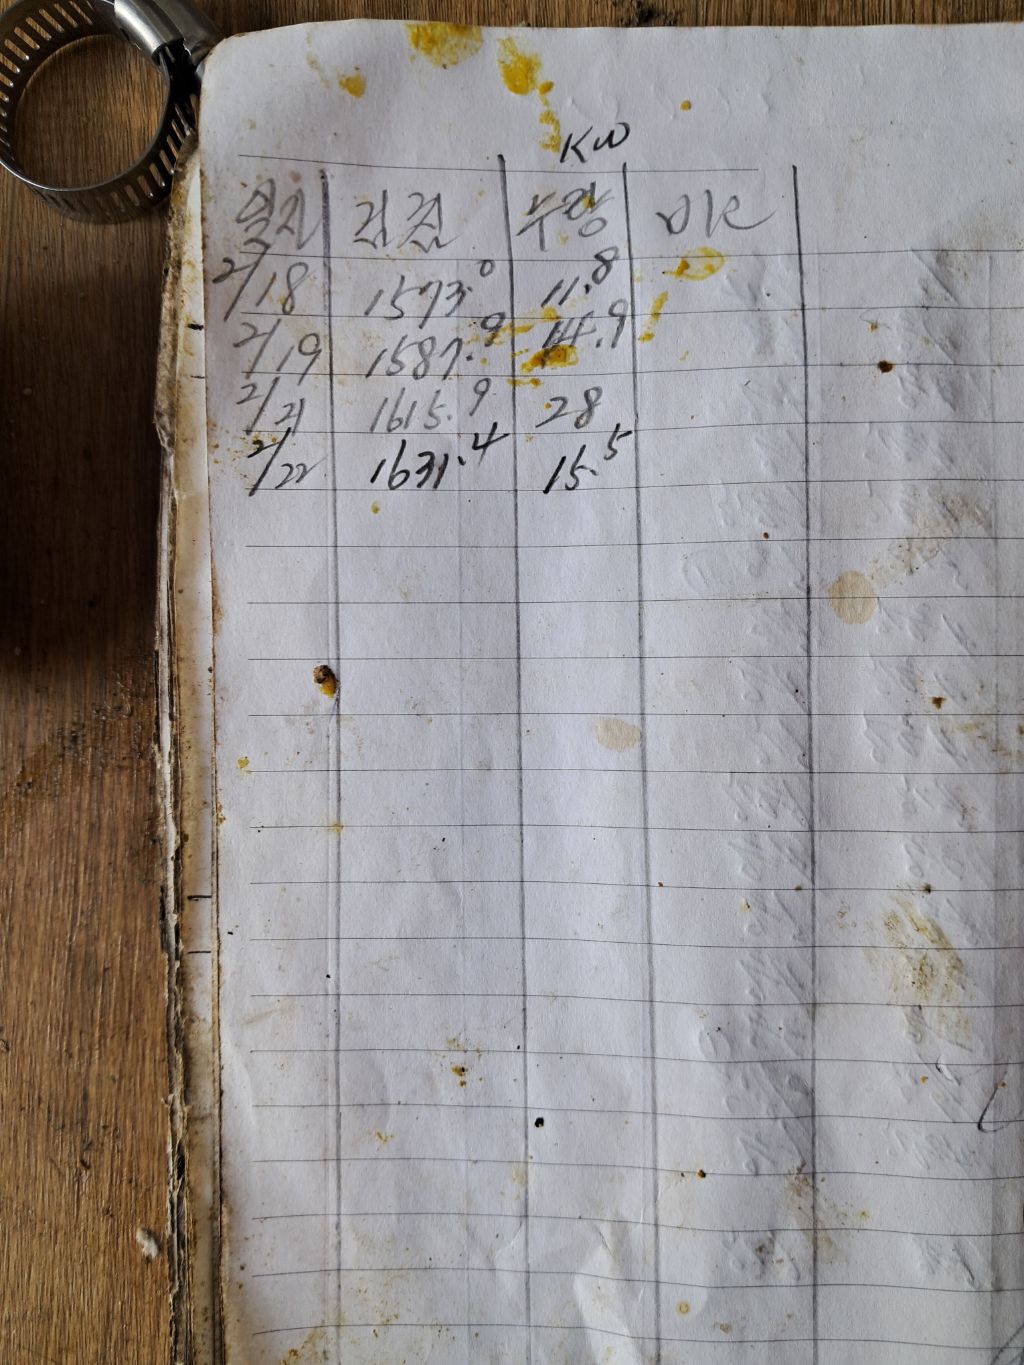 KW
일자 검침 수량 비고
2/18 1573.0 11.8
2/19 1587.9 14.9
2/21 1615.9 28
2/22 1631.4 15.5